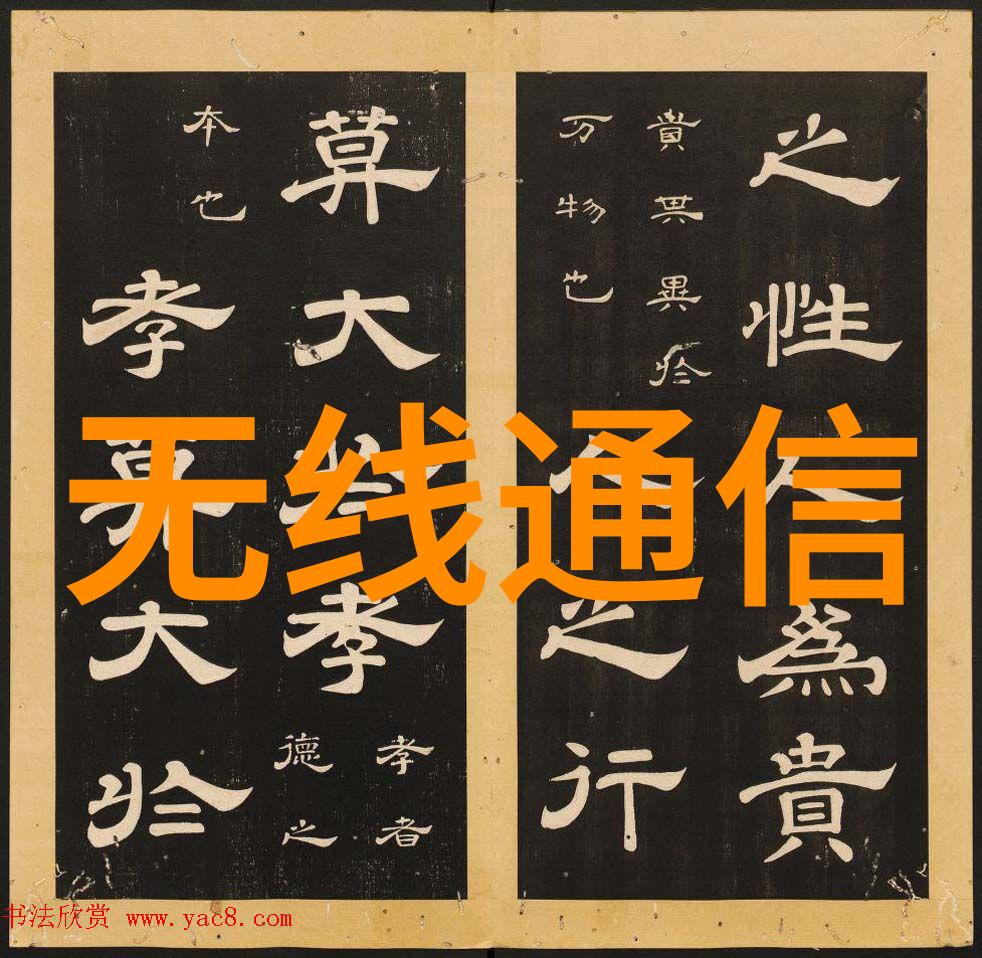 之性人為貴
貴其異於
万物也
人之行
莫大於孝
孝者
德之
本也
孝莫大於
无线通信
书法欣赏 www.yac8.com